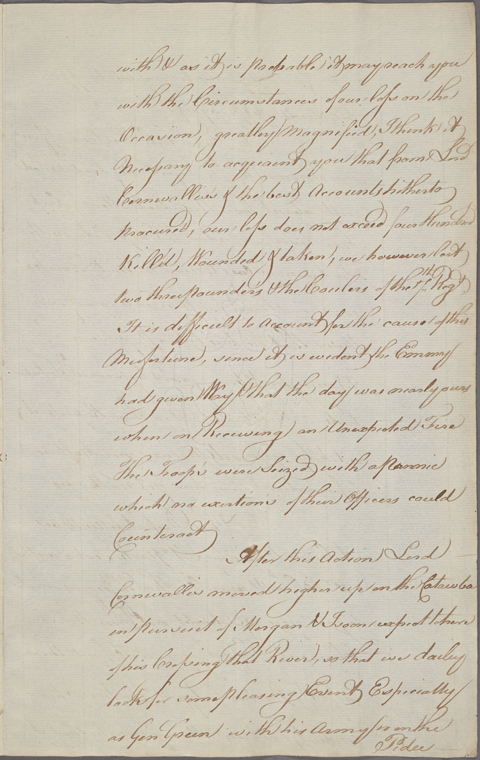 with & as it is probable it may reach you
with the Circumstances of our loss on the
Occasion, greatly Magnified, I think it
Necessary to acquaint you that from Lord
Cornwallis & the best Accounts hitherto
procured, our loss does not exceed four Hundred
Killed, Wounded & taken, we however lost
two three pounders & the Coulers of the 7th Regt.
It is difficult to Account for the cause of this
Misfortune, since it is evident the Enemy
had given Way & that the day was nearly ours
when on Receiving an Unexpected Fire
The Troops were Seized with a Pannic
which no exertions of their Officers could
Counteract
After this Action Lord
Cornwallis moved higher up on the Catawba
in pursuit of Morgan & I soon expect to hear
of his Crossing that River, so that we dailey
look for some pleasing Event Especially
as Genl Green with his Army is on the
Pidee